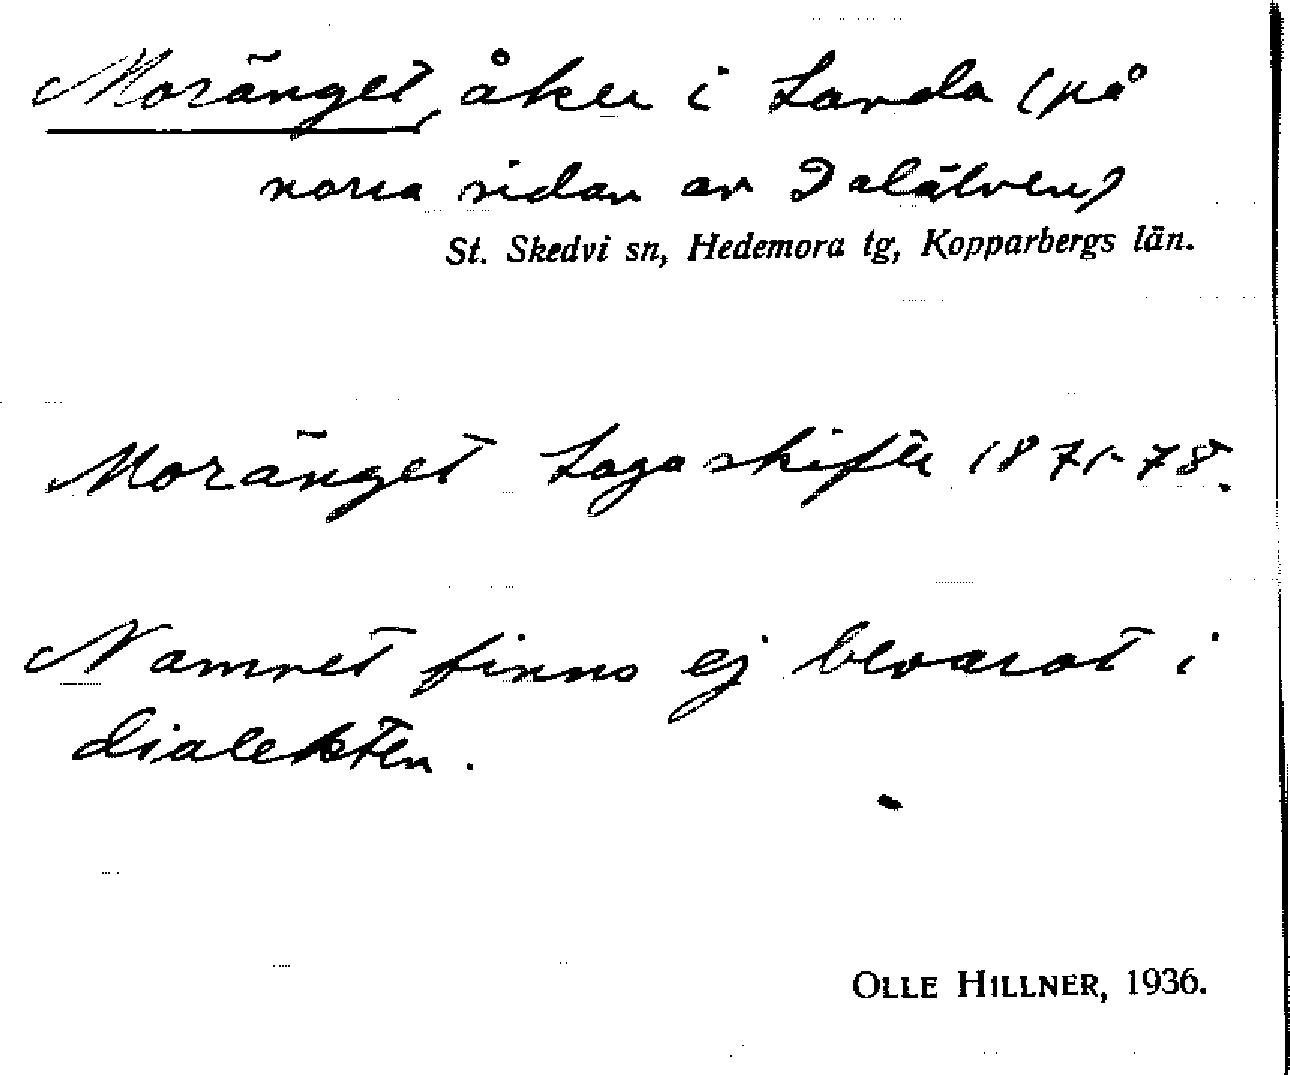 Moränget, åker i Landa (på
norra sidan av Dalälven)
St. Skedvi sn, Hedemora tg, Kopparbergs län.
Moränget Laga skifte 1871-78.
Namnet finns ej bevarat i
dialekten.
OLLE HILLNER, 1936.